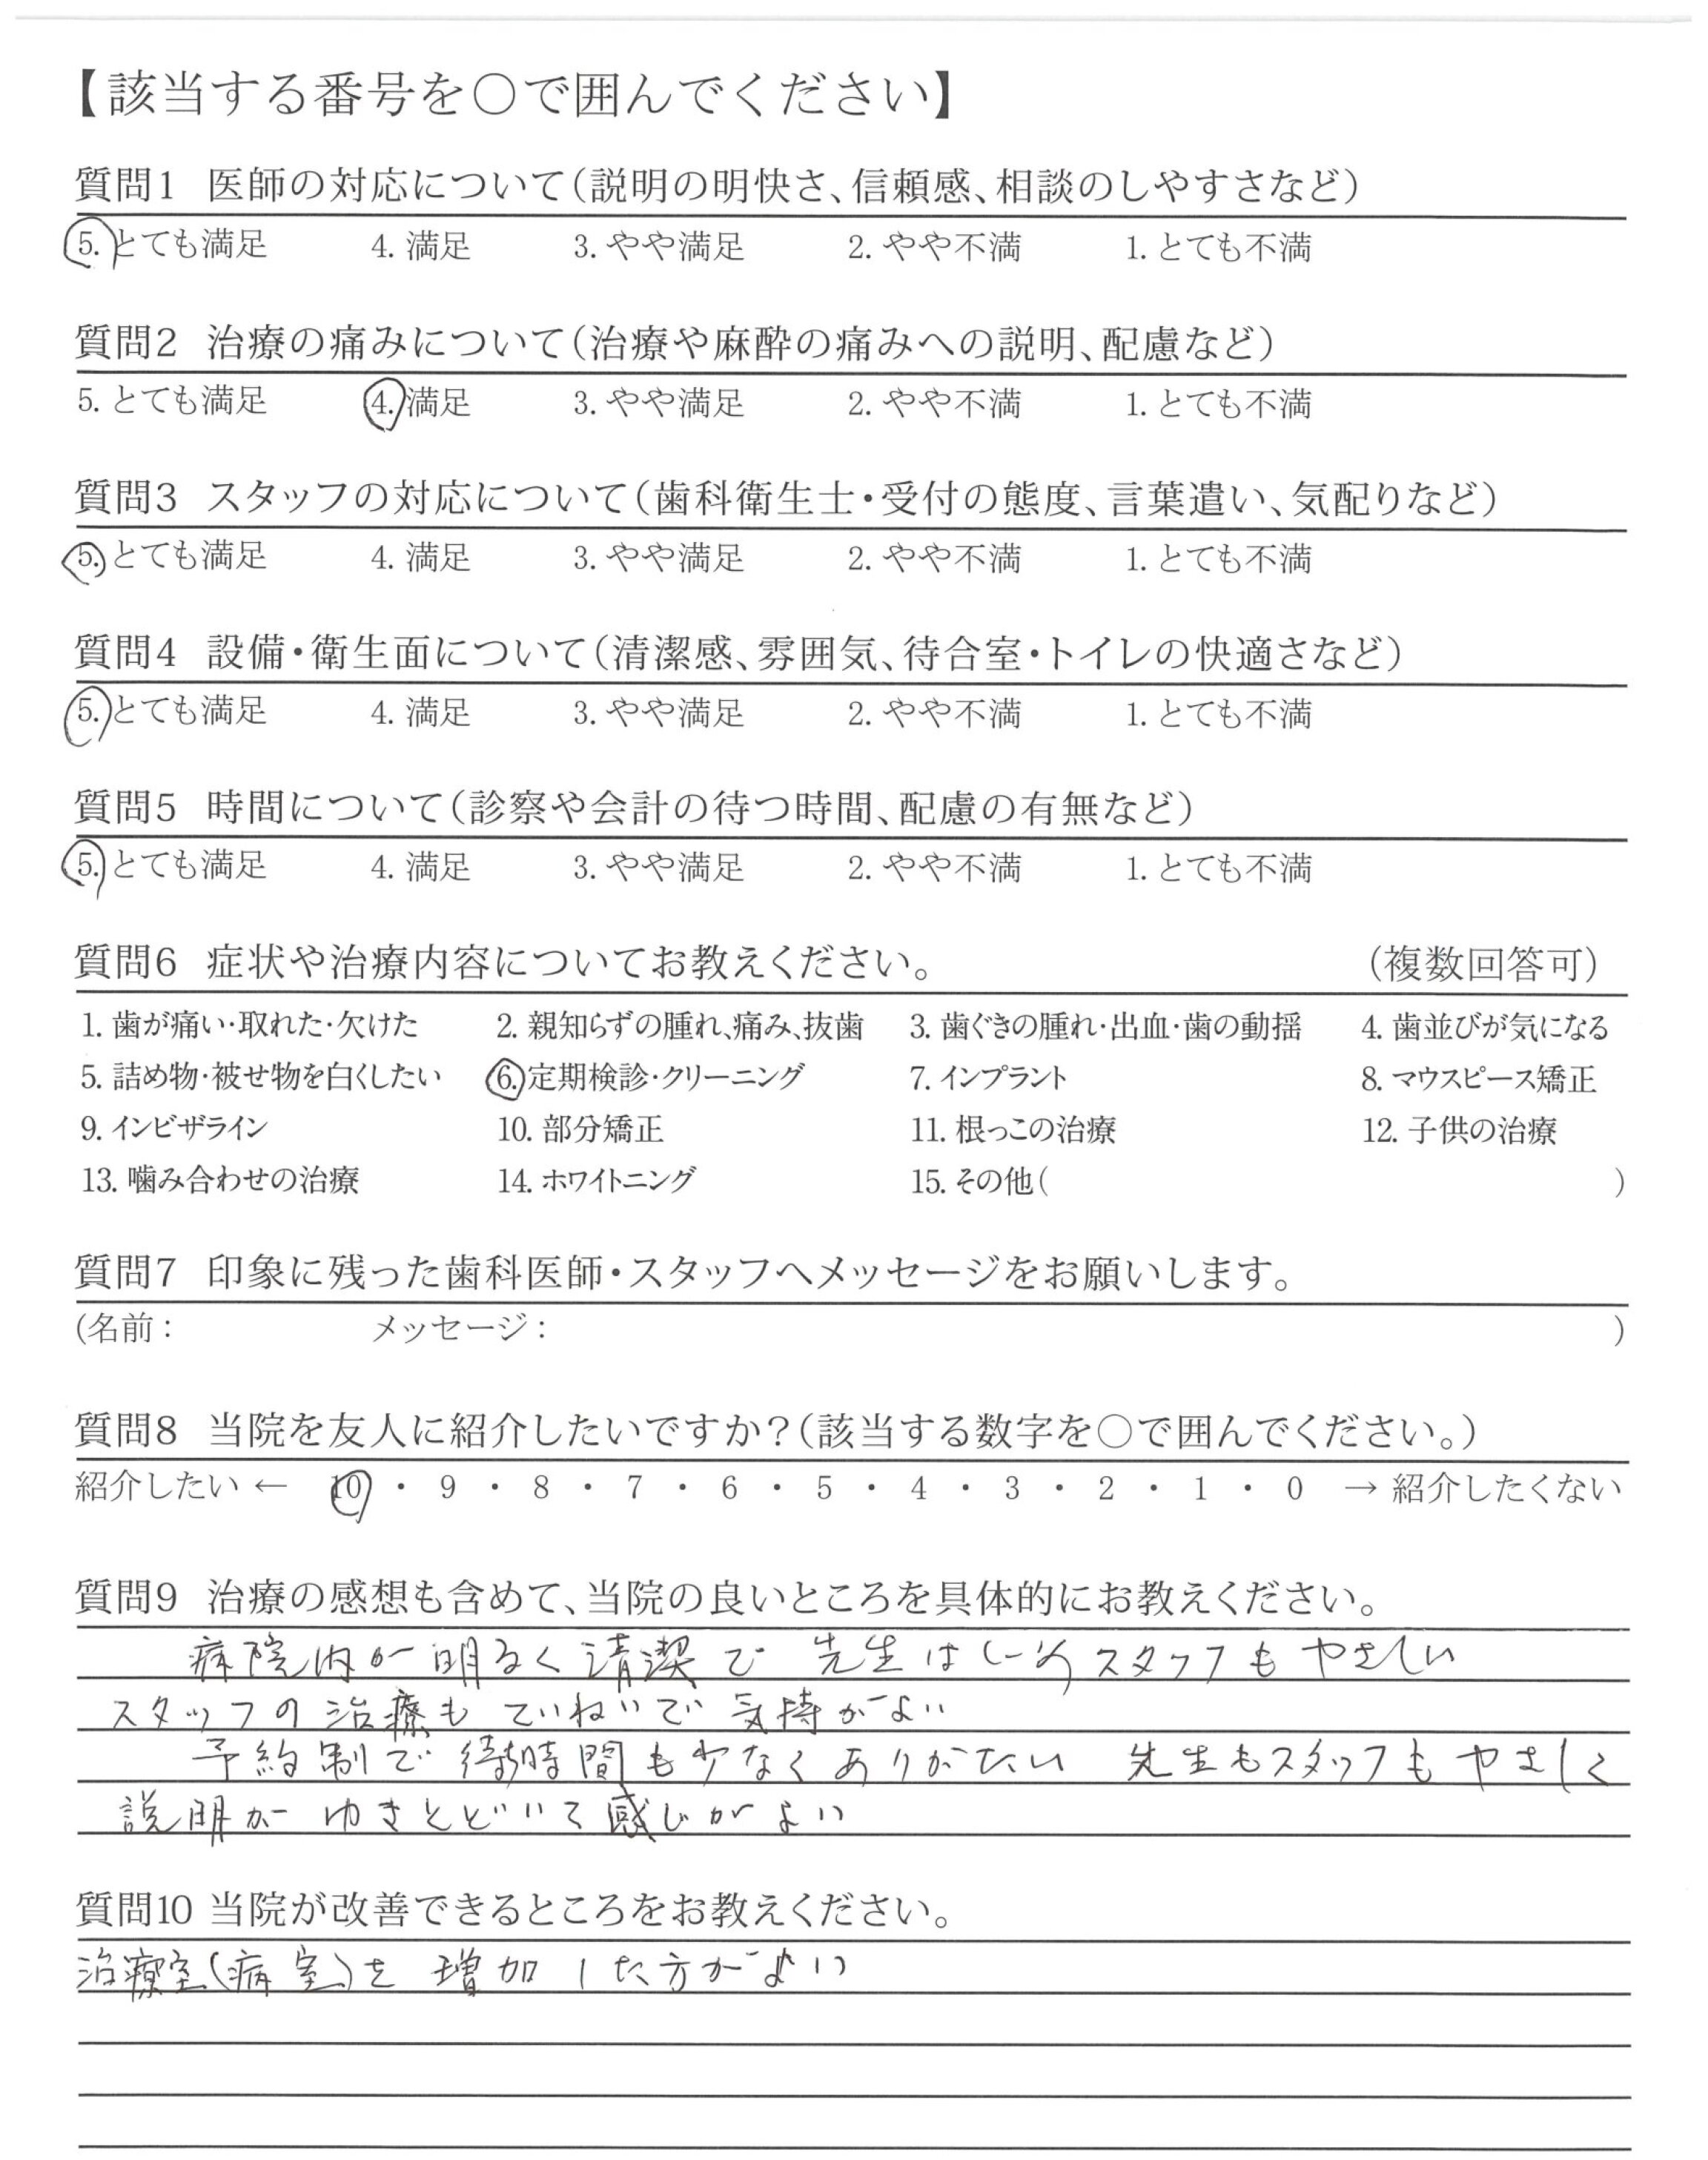 【該当する番号を○で囲んでください】
質問1 医師の対応について(説明の明快さ、信頼感、相談のしやすさなど)
5. とても満足 4. 満足 3. やや満足 2. やや不満 1. とても不満
質問2 治療の痛みについて(治療や麻酔の痛みへの説明、配慮など)
5. とても満足 4. 満足 3. やや満足 2. やや不満 1. とても不満
質問3 スタッフの対応について(歯科衛生士・受付の態度、言葉遣い、気配りなど)
5. とても満足 4. 満足 3. やや満足 2. やや不満 1. とても不満
質問4 設備・衛生面について(清潔感、雰囲気、待合室・トイレの快適さなど)
5. とても満足 4. 満足 3. やや満足 2. やや不満 1. とても不満
質問5 時間について(診察や会計の待つ時間、配慮の有無など)
5. とても満足 4. 満足 3. やや満足 2. やや不満 1. とても不満
質問6 症状や治療内容についてお教えください。 (複数回答可)
1. 歯が痛い・取れた・欠けた 2. 親知らずの腫れ、痛み、抜歯 3. 歯ぐきの腫れ・出血・歯の動揺 4. 歯並びが気になる
5. 詰め物・被せ物を白くしたい 6. 定期検診・クリーニング 7. インプラント 8. マウスピース矯正
9. インビザライン 10. 部分矯正 11. 根っこの治療 12. 子供の治療
13. 噛み合わせの治療 14. ホワイトニング 15. その他( )
質問7 印象に残った歯科医師・スタッフへメッセージをお願いします。
(名前: メッセージ: )
質問8 当院を友人に紹介したいですか?(該当する数字を○で囲んでください。)
紹介したい ← 10 ・ 9 ・ 8 ・ 7 ・ 6 ・ 5 ・ 4 ・ 3 ・ 2 ・ 1 ・ 0 → 紹介したくない
質問9 治療の感想も含めて、当院の良いところを具体的にお教えください。
病院内が明るく清潔で 先生はじめスタッフもやさしい
スタッフの治療もていねいで気持がよい
予約制で待時間も少なくありがたい 先生もスタッフもやさしく
説明がゆきとどいて感じがよい
質問10 当院が改善できるところをお教えください。
治療室(病室)を増加した方がよい